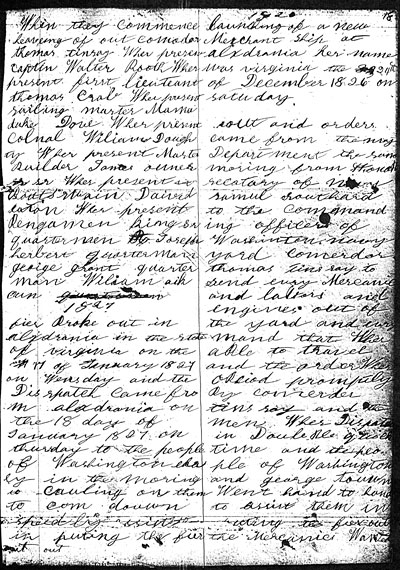 When they commence
leaving of out comador
thomas tinsay Wher present
captin Walter Booth Wher
present first lieutenant
thomas Crab Wher present
sailing marter Mama
duke Dove Wher present
Colnal Wiliam Dough
ty Wher present Mastr
Builder James owner
sr sr Wher present
Boats wain David
eaton Wher present
Bengamen King sr
quartermen Joseph
herbert quarterman
george grant quarter
man Wiliam aik
1827
fier Broke out in
alxdrania in the state
of virginia on the
of January 1827
on Wensday and the
Dispatch Came fro
m alxdrania on
the 18 days of
January 1827 on
thursday to the people
of Washington ea
ly in the moring
Cauling on them
to com down
speedly
in puting the fier
out
18
1826
launding of a new
Merchant ship at
alxdrania her name
was virginia the
of December 1826 on
satuday
and orders
came from the navy
Department the same
moring from the
secatary of navy
samul southard
to the command
ing officers of
Washinton navy
yard comerdor
thomas tinsay to
send evry Mecanic
and labors and
engines out of
the yard and
mand that Wher
able to travel
and the order Wher
obeied promptly
By comerder
tinsay and the
men Wher Dispatch
in Double quick
time and the peo
ple of Washington
and george town
Went hand to hand
to asist them in
puting the fier out
the Mecanics